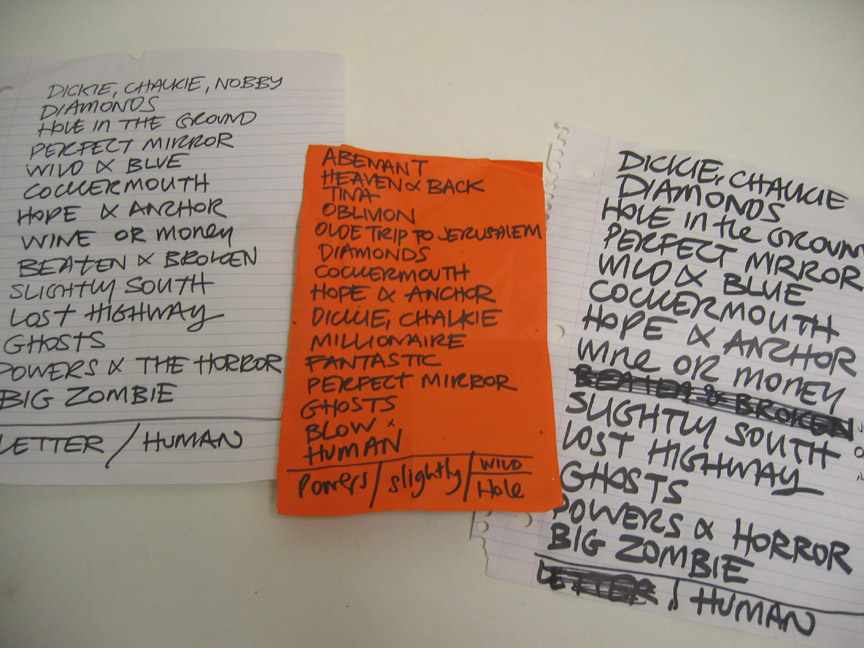 DICKIE, CHALKIE, NOBBY
DIAMONDS
HOLE IN THE GROUND
PERFECT MIRROR
WILD & BLUE
COCKERMOUTH
HOPE & ANCHOR
WINE OR MONEY
BEATEN & BROKEN
SLIGHTLY SOUTH
LOST HIGHWAY
GHOSTS
POWERS & THE HORROR
BIG ZOMBIE
LETTER / HUMAN
ABENANT
HEAVEN & BACK
TINA
OBLIVION
OLDE TRIP TO JERUSALEM
DIAMONDS
COCKERMOUTH
HOPE & ANCHOR
DICKIE, CHALKIE
MILLIONAIRE
FANTASTIC
PERFECT MIRROR
GHOSTS
BLOW x
HUMAN
Powers / slightly / WILD
Hole
DICKIE, CHALKIE
DIAMONDS
HOLE in the GROUND
PERFECT MIRROR
WILD & BLUE
COCKERMOUTH
HOPE & ANCHOR
WINE OR MONEY
BEATEN & BROKEN
SLIGHTLY SOUTH
LOST HIGHWAY
GHOSTS
POWERS & HORROR
BIG ZOMBIE
LETTER / HUMAN